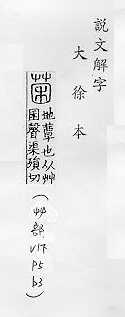 說文解字
大徐本
菌
地蕈也从艸
囷聲渠殞切
(艸部
V17
P5
b3)